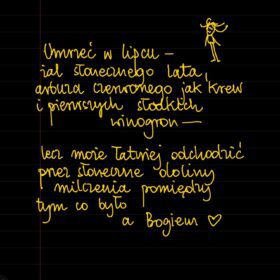 Umrzeć w lipcu –
żal słonecznego lata,
arbuza czerwonego jak krew
i pierwszych słodkich
winogron –
lecz może łatwiej odchodzić
przez słoneczne doliny
milczenia pomiędzy
tym co było
a Bogiem ♡